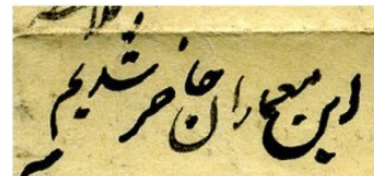 این معماران حاضر شدیم